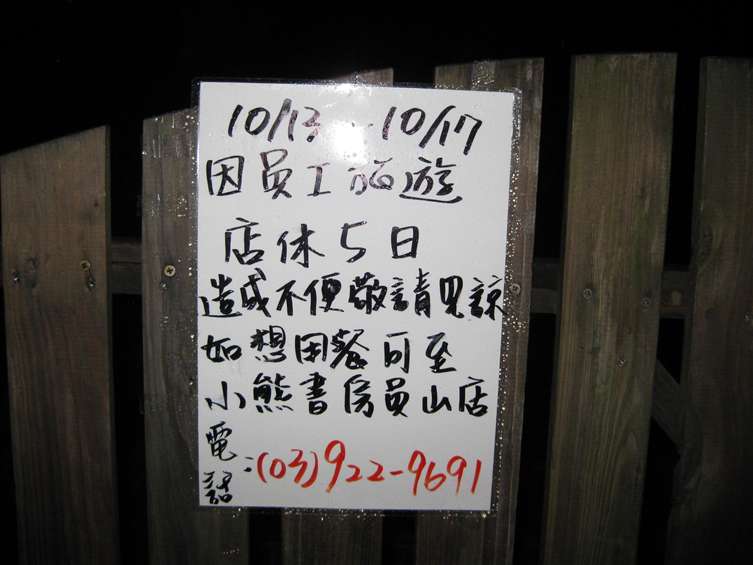 10/13~10/17
因員工旅遊
店休5日
造成不便敬請見諒
如想用餐可至
小熊書房員山店
電話:(03)922-9691